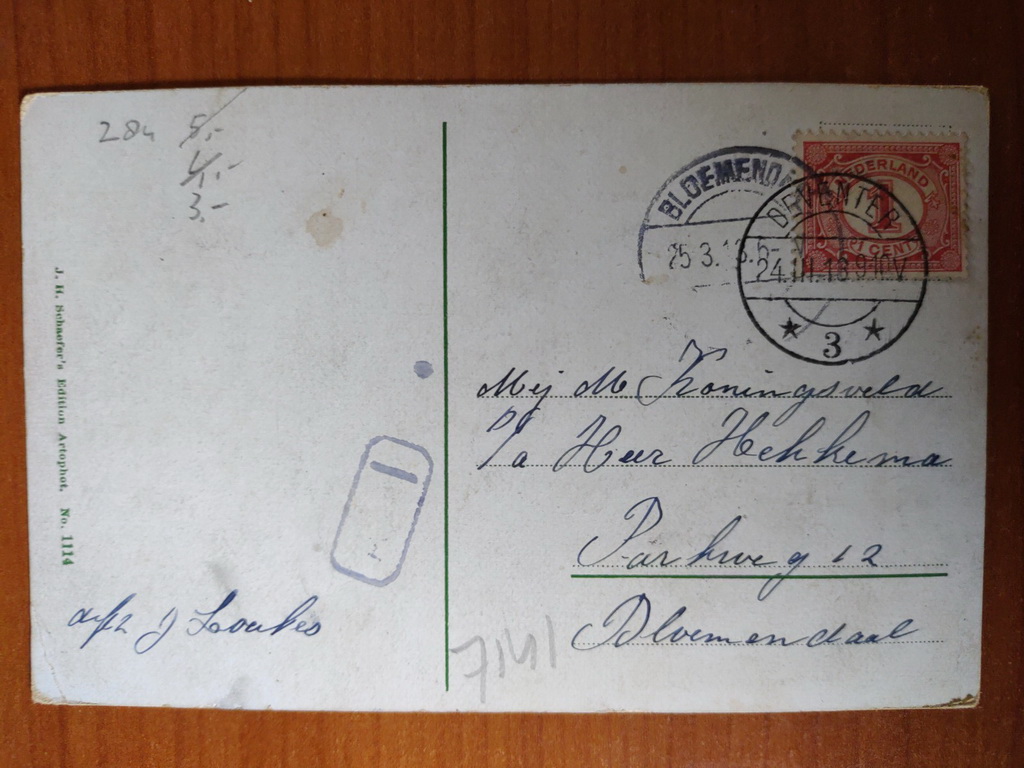 284
5,-
4,-
3,-
J. H. Schaefer's Edition Artophot, No. 1114
afz J Loukes
7141
NEDERLAND
1
1 CENT
BLOEMENDA
25 3. 13. 6-
DEVENTER
24.III.13 9-10V
3
Mej M Koningsveld
P/a Heer Hekkema
Parkweg 12
Bloemendaal